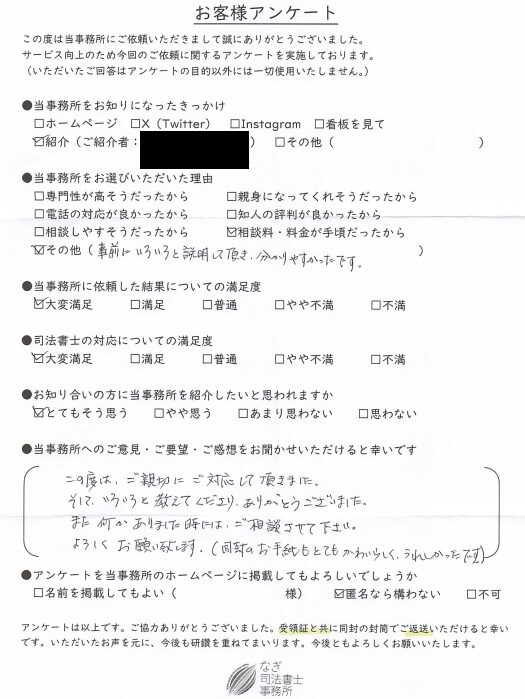 お客様アンケート
この度は当事務所にご依頼いただきまして誠にありがとうございました。
サービス向上のため今回のご依頼に関するアンケートを実施しております。
（いただいたご回答はアンケートの目的以外には一切使用いたしません。）
●当事務所をお知りになったきっかけ
□ホームページ □X（Twitter） □Instagram □看板を見て
☑紹介（ご紹介者： ） □その他（ ）
●当事務所をお選びいただいた理由
□専門性が高そうだったから □親身になってくれそうだったから
□電話の対応が良かったから □知人の評判が良かったから
□相談しやすそうだったから ☑相談料・料金が手頃だったから
☑その他（事前にいろいろと説明して頂き、分かりやすかったです。 ）
●当事務所に依頼した結果についての満足度
☑大変満足 □満足 □普通 □やや不満 □不満
●司法書士の対応についての満足度
☑大変満足 □満足 □普通 □やや不満 □不満
●お知り合いの方に当事務所を紹介したいと思われますか
☑とてもそう思う □やや思う □あまり思わない □思わない
●当事務所へのご意見・ご要望・ご感想をお聞かせいただけると幸いです
この度は、ご親切にご対応して頂きました。
そして、いろいろと教えてくださり、ありがとうございました。
また何かありました時には、ご相談させて下さい。
よろしくお願い致します。（同封のお手紙もとてもかわいらしく、うれしかったです）
●アンケートを当事務所のホームページに掲載してもよろしいでしょうか
□名前を掲載してもよい（ 様） ☑匿名なら構わない □不可
アンケートは以上です。ご協力ありがとうございました。受領証と共に同封の封筒でご返送いただけると幸い
です。いただいたお声を元に、今後も研鑽を重ねてまいります。今後ともよろしくお願いいたします。
なぎ
司法書士
事務所